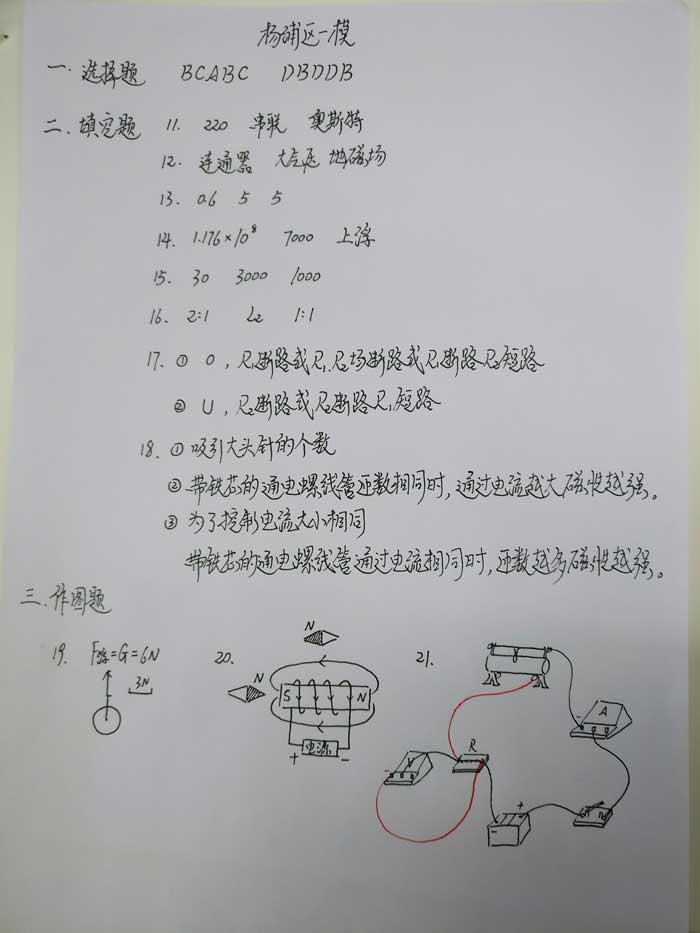 杨浦区一模
一.选择题 BCABC DBDDB
二.填空题 11. 220 串联 奥斯特
12. 连通器 大气压 地磁场
13. 0.6 5 5
14. 1.176×10⁸ 7000 上浮
15. 30 3000 1000
16. 2:1 L₂ 1:1
17. ① 0, R₁断路或R₁、R₂均断路或R₁断路R₂短路
② U, R₂断路或R₂断路R₁短路
18. ①吸引大头针的个数
②带铁芯的通电螺线管匝数相同时,通过电流越大磁性越强。
③为了控制电流大小相同
带铁芯的通电螺线管通过电流相同时,匝数越多磁性越强。
三.作图题
19. F浮=G=6N
3N
20.
N
N
S N
电源
+ -
21.
A
R
V
-
-
+
-